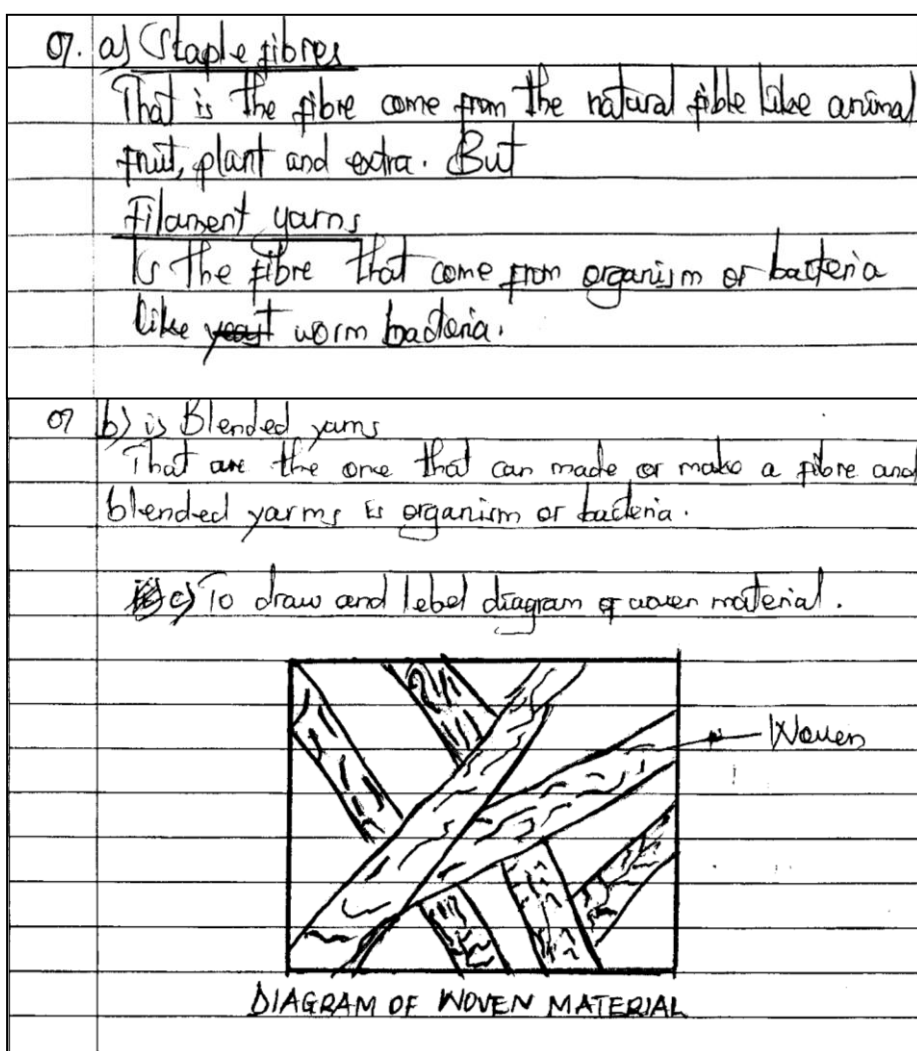 07. a) Staple fibres
That is the fibre come from the natural fible like animal
fruit, plant and extra. But
Filament yarns
Is the fibre that come from organism or bacteria
like yeast worm bacteria.
07 b) is Blended yarns
That are the one that can made or make a fibre and
blended yarms is organism or bacteria.
c) To draw and lebel diagram of woven material.
Woven
DIAGRAM OF WOVEN MATERIAL